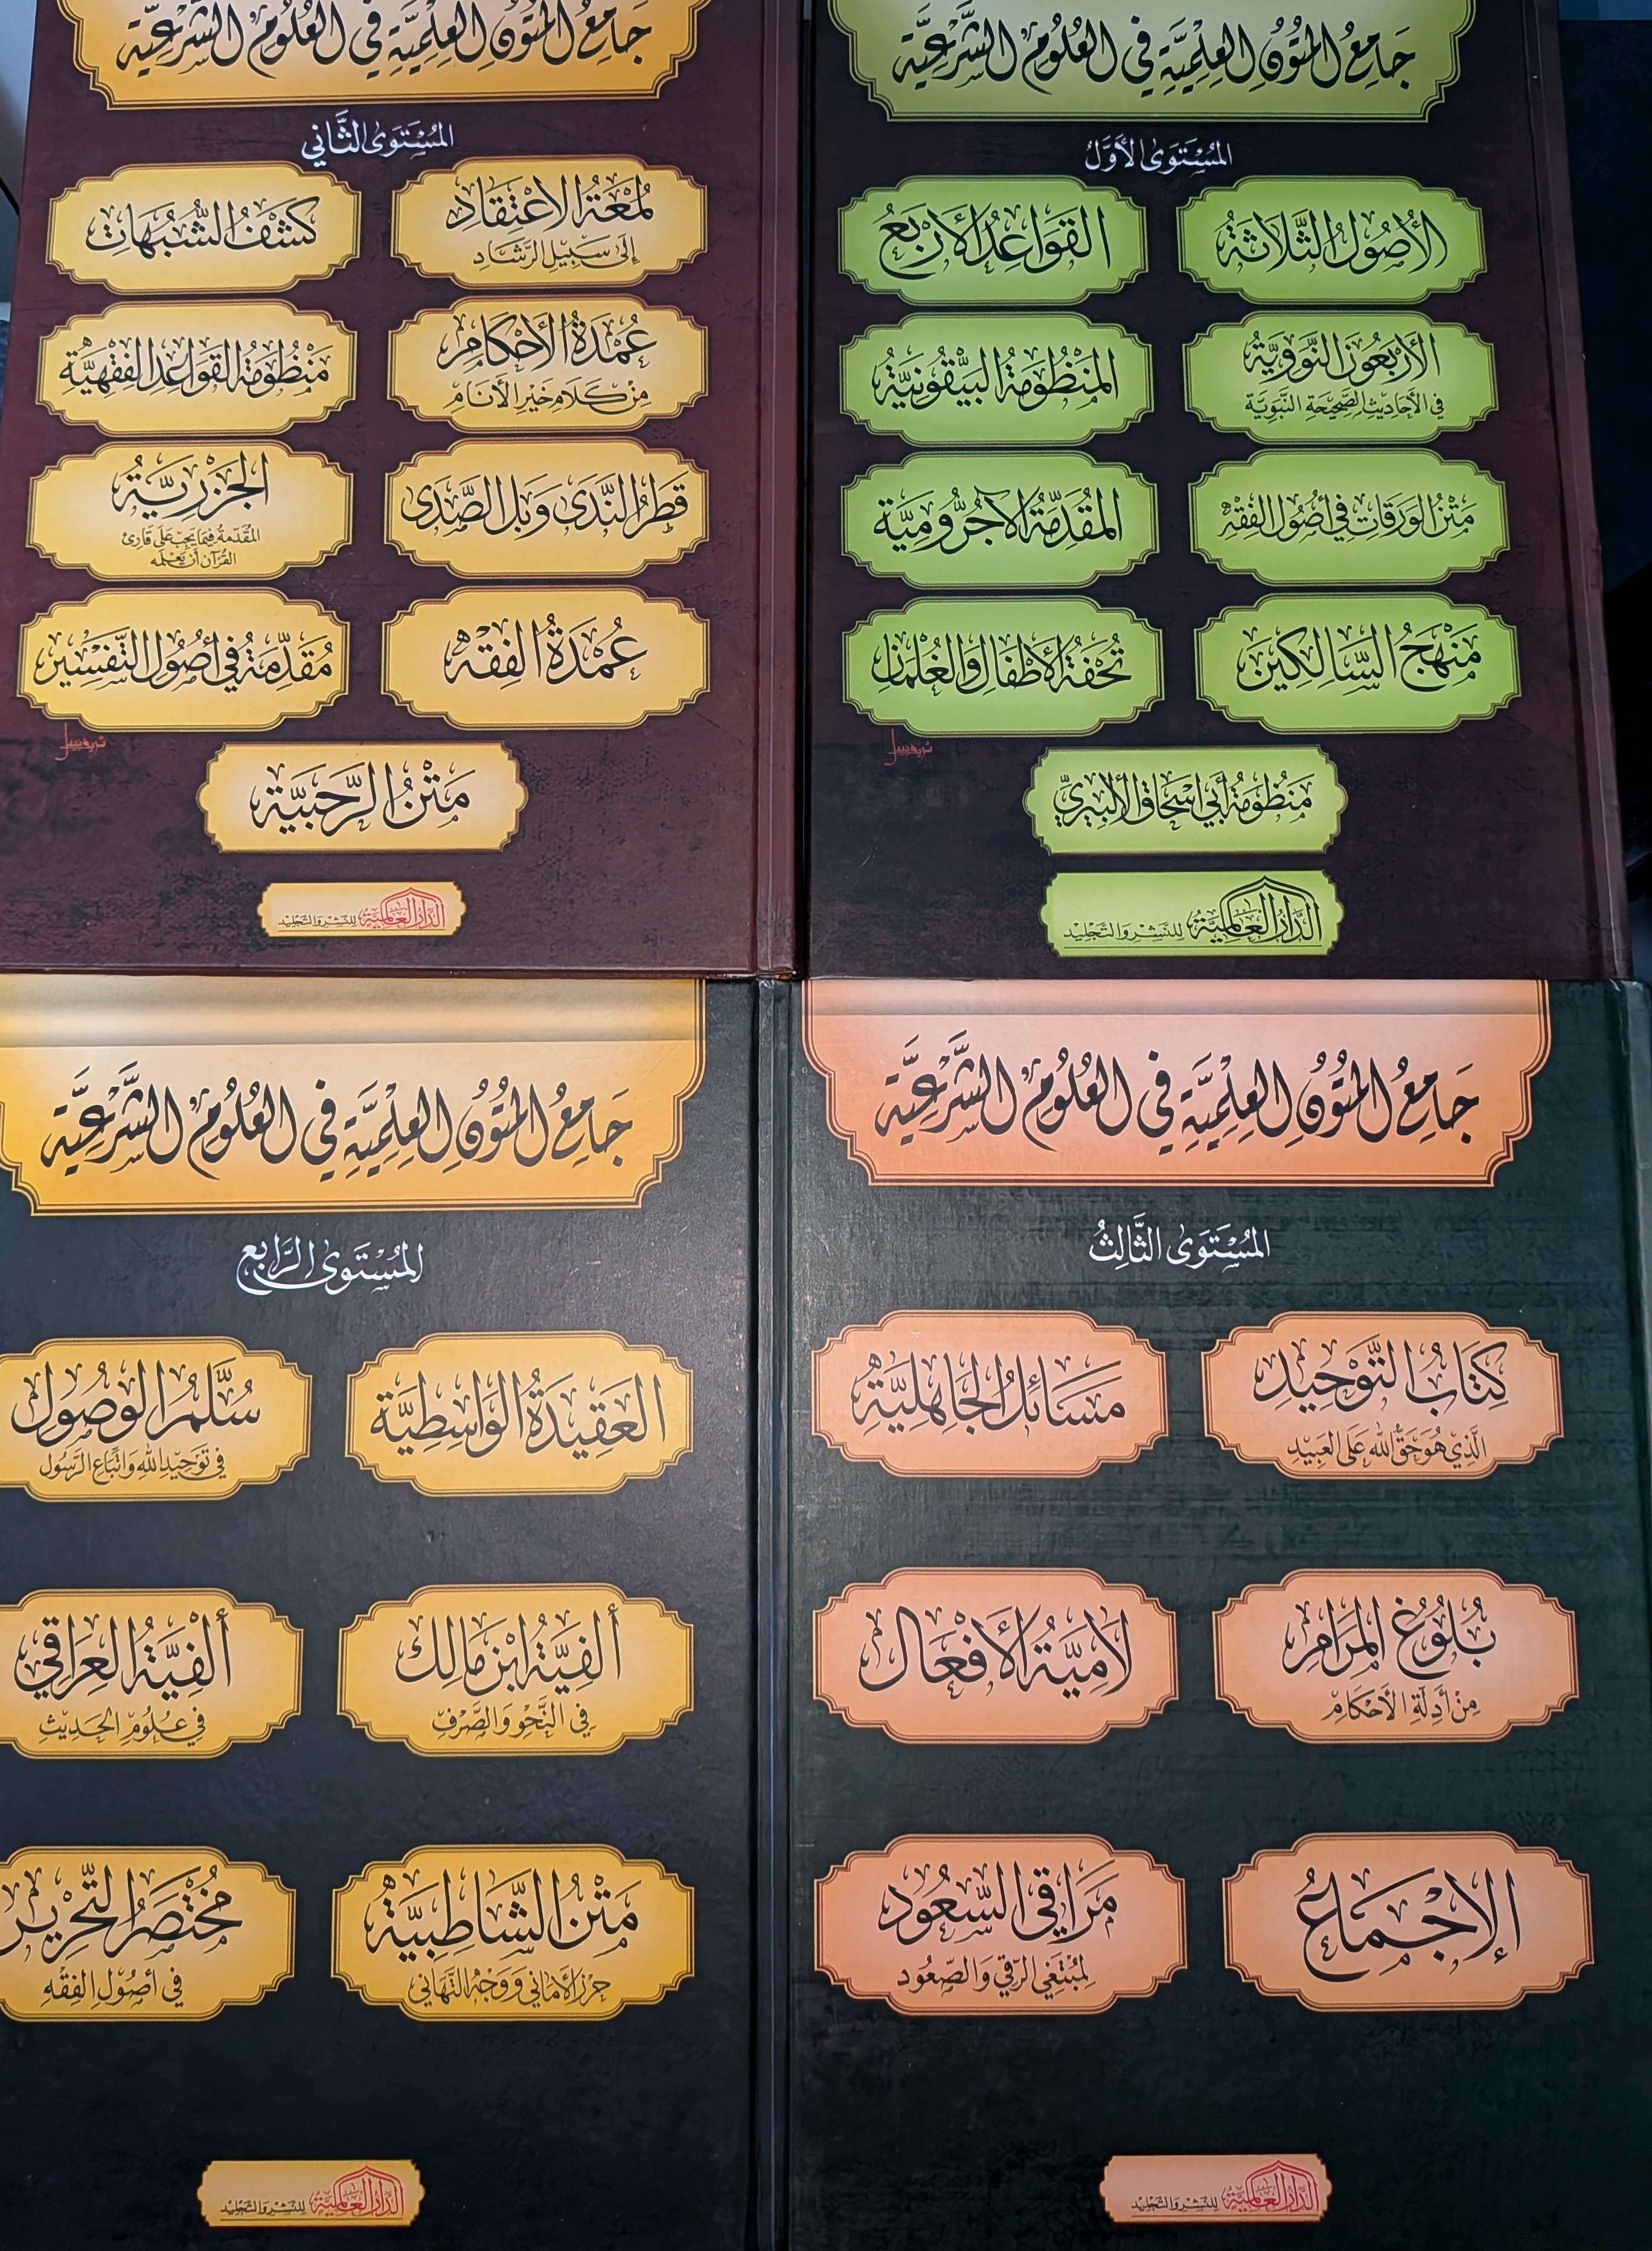 جَامِعُ المُتُونِ العِلْمِيَّةِ فِي العُلُومِ الشَّرْعِيَّة
المُسْتَوَى الأَوَّل
الأُصُولُ الثَّلَاثَةُ
القَوَاعِدُ الأَرْبَعُ
الأَرْبَعُونَ النَّوَوِيَّةُ
في الأَحَادِيثِ الصَّحِيحَةِ النَّبَوِيَّة
المَنْظُومَةُ البَيْقُونِيَّةُ
مَتْنُ الوَرَقَاتِ فِي أُصُولِ الفِقْهِ
المُقَدِّمَةُ الآجُرُّومِيَّة
مَنْهَجُ السَّالِكِينَ
تُحْفَةُ الأَطْفَالِ وَالغُلْمَانِ
مَنْظُومَةُ أَبِي إِسْحَاقَ الأَلْبِيرِيِّ
الدَّارُ العَالَمِيَّة لِلنَّشْرِ وَالتَّجْلِيد
جَامِعُ المُتُونِ العِلْمِيَّةِ فِي العُلُومِ الشَّرْعِيَّة
المُسْتَوَى الثَّانِي
لُمْعَةُ الاعْتِقَادِ
إِلَى سَبِيلِ الرَّشَادِ
كَشْفُ الشُّبُهَاتِ
عُمْدَةُ الأَحْكَامِ
مِنْ كَلَامِ خَيْرِ الأَنَامِ
مَنْظُومَةُ القَوَاعِدِ الفِقْهِيَّة
قَطْرُ النَّدَى وَبَلُّ الصَّدَى
الجَزَرِيَّةُ
المُقَدِّمَةُ فِيمَا يَجِبُ عَلَى قَارِئِ
القُرْآنِ أَنْ يَعْلَمَه
عُمْدَةُ الفِقْهِ
مُقَدِّمَةٌ فِي أُصُولِ التَّفْسِيرِ
مَتْنُ الرَّحَبِيَّة
الدَّارُ العَالَمِيَّة لِلنَّشْرِ وَالتَّجْلِيد
جَامِعُ المُتُونِ العِلْمِيَّةِ فِي العُلُومِ الشَّرْعِيَّة
المُسْتَوَى الثَّالِثُ
كِتَابُ التَّوْحِيدِ
الَّذِي هُوَ حَقُّ اللهِ عَلَى العَبِيدِ
مَسَائِلُ الجَاهِلِيَّةِ
بُلُوغُ المَرَامِ
مِنْ أَدِلَّةِ الأَحْكَامِ
لَامِيَّةُ الأَفْعَالِ
الإِجْمَاعُ
مَرَاقِي السُّعُود
لِمُبْتَغِي الرُّقِيِّ وَالصُّعُود
الدَّارُ العَالَمِيَّة لِلنَّشْرِ وَالتَّجْلِيد
جَامِعُ المُتُونِ العِلْمِيَّةِ فِي العُلُومِ الشَّرْعِيَّة
المُسْتَوَى الرَّابِع
العَقِيدَةُ الوَاسِطِيَّة
سُلَّمُ الوُصُولِ
فِي تَوْحِيدِ اللهِ وَاتِّبَاعِ الرَّسُول
أَلْفِيَّةُ ابْنِ مَالِك
فِي النَّحْوِ وَالصَّرْفِ
أَلْفِيَّةُ العِرَاقِي
فِي عُلُومِ الحَدِيثِ
مَتْنُ الشَّاطِبِيَّة
حِرْزُ الأَمَانِي وَوَجْهُ التَّهَانِي
مُخْتَصَرُ التَّحْرِيرِ
فِي أُصُولِ الفِقْهِ
الدَّارُ العَالَمِيَّة لِلنَّشْرِ وَالتَّجْلِيد